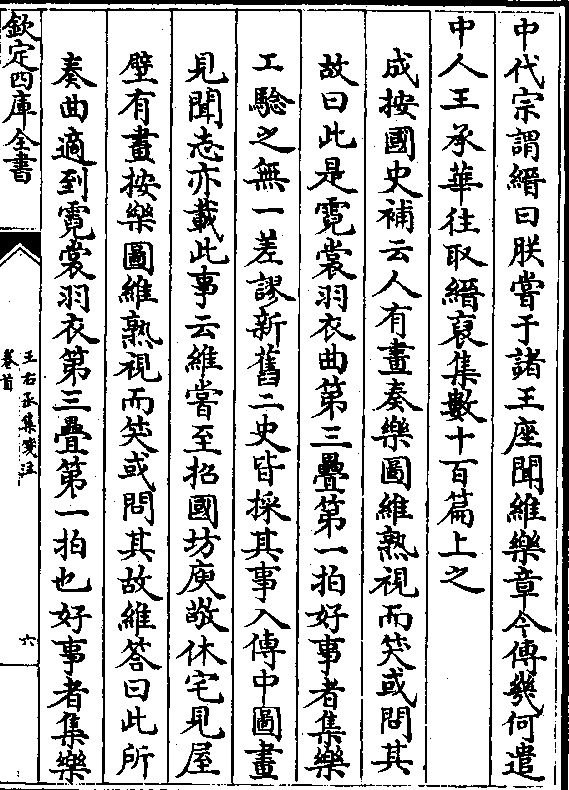 中代宗謂縉曰朕嘗于諸王座聞維樂章今傳幾何遣
中人王承華往取縉裒集數十百篇上之
成按國史補云人有畫奏樂圖維熟視而笑或問其
故曰此是霓裳羽衣曲第三疊第一拍好事者集樂
工驗之無一差謬新舊二史皆採其事入傳中圖畫
見聞志亦載此事云維嘗至招國坊庾敬休宅見屋
壁有畫按樂圖維熟視而笑或問其故維答曰此所
奏曲適到霓裳羽衣第三疊第一拍也好事者集樂
欽定四庫全書
王右丞集箋注
卷首
六